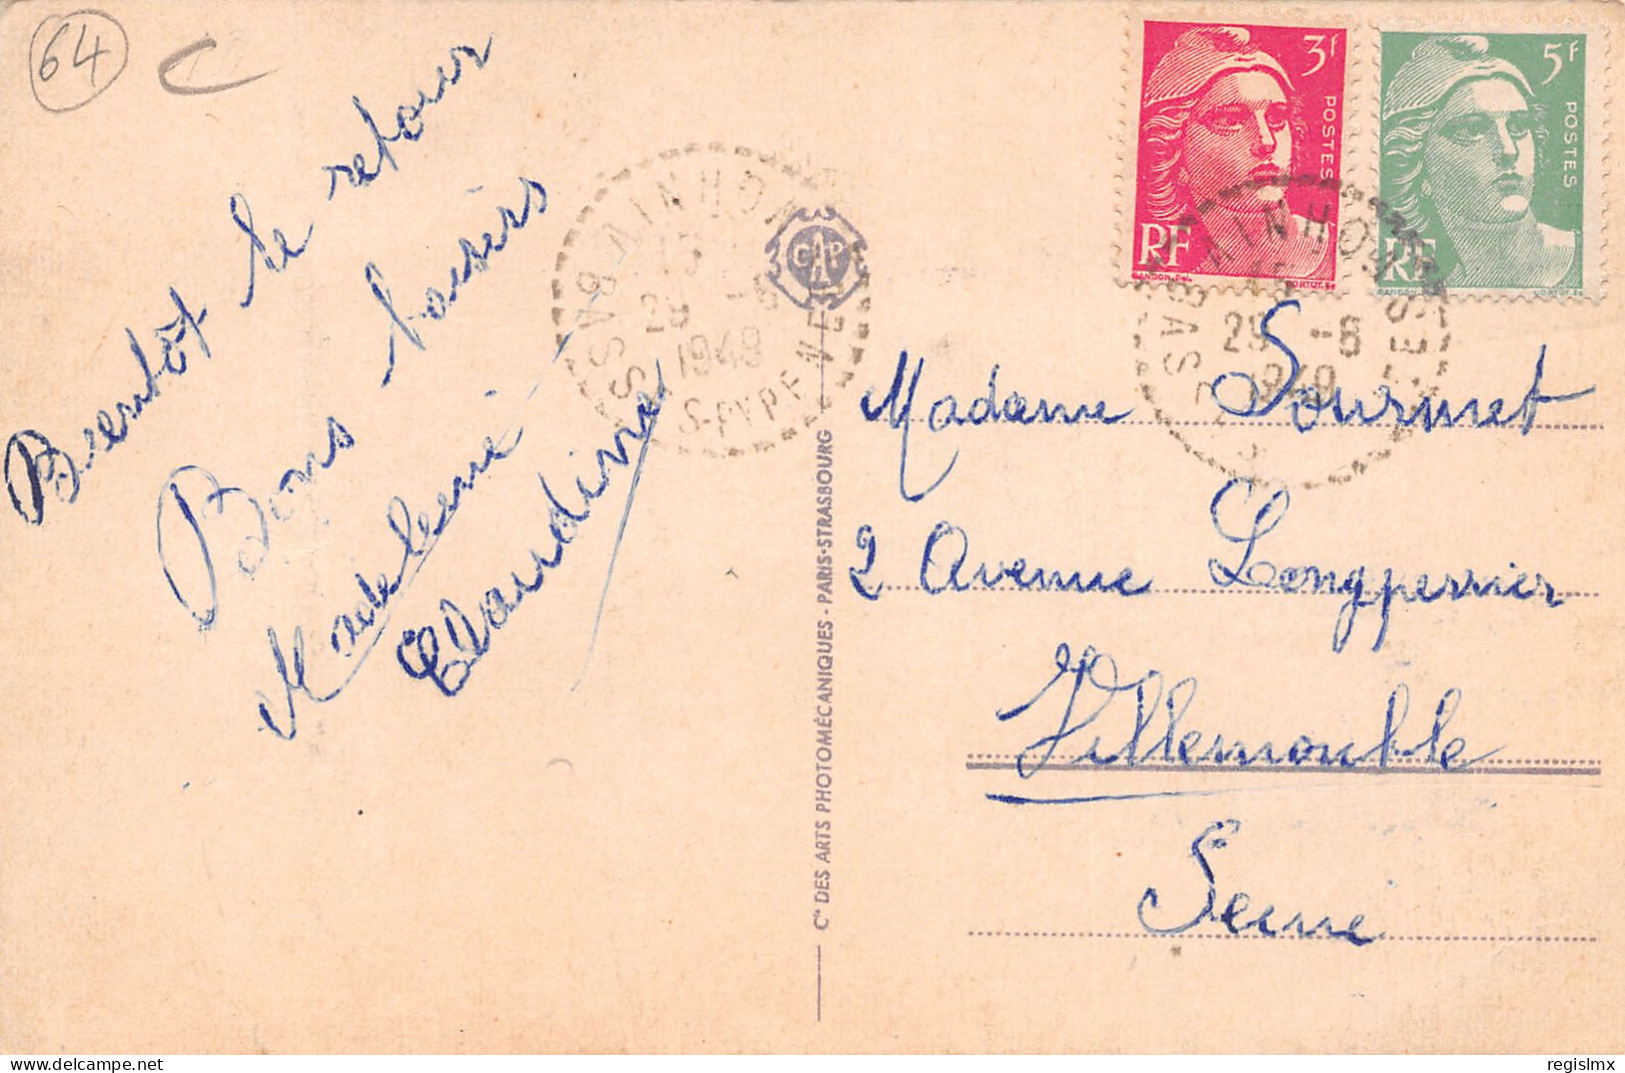 64
Bientôt le retour
Bons baisers
Madeleine
Claudine
CAP
AINHOA
29 -6
1949
BASSES-PYRENEES
3f
POSTES
RF
GANDON. Del.
CORTOT. Sc
5f
POSTES
RF
AINHOA
29 -6
1949
Madame Sourmet
2 Avenue Longperrier
Villemomble
Seine
Cie DES ARTS PHOTOMÉCANIQUES - PARIS-STRASBOURG
regislmx